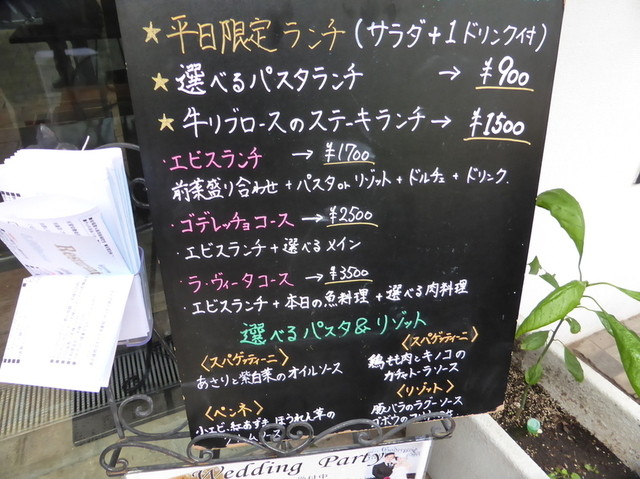 ★平日限定ランチ(サラダ+1ドリンク付)
★選べるパスタランチ → ¥900
★牛リブロースのステーキランチ→ ¥1500
・エビスランチ → ¥1700
前菜盛り合わせ+パスタorリゾット+ドルチェ+ドリンク.
・ゴデレッチョコース → ¥2500
・エビスランチ+選べるメイン
・ラ・ヴィータコース → ¥3500
・エビスランチ+本日の魚料理+選べる肉料理
選べるパスタ&リゾット
〈スパゲッティーニ〉
あさりと紫白菜のオイルソース
〈ペンネ〉
小エビ・紅あずま・ほうれん草の
〈スパゲッティーニ〉
鶏もも肉とキノコの
カチャトーラソース
〈リゾット〉
豚バラのラグーソース
ゴボウの
Wedding Party